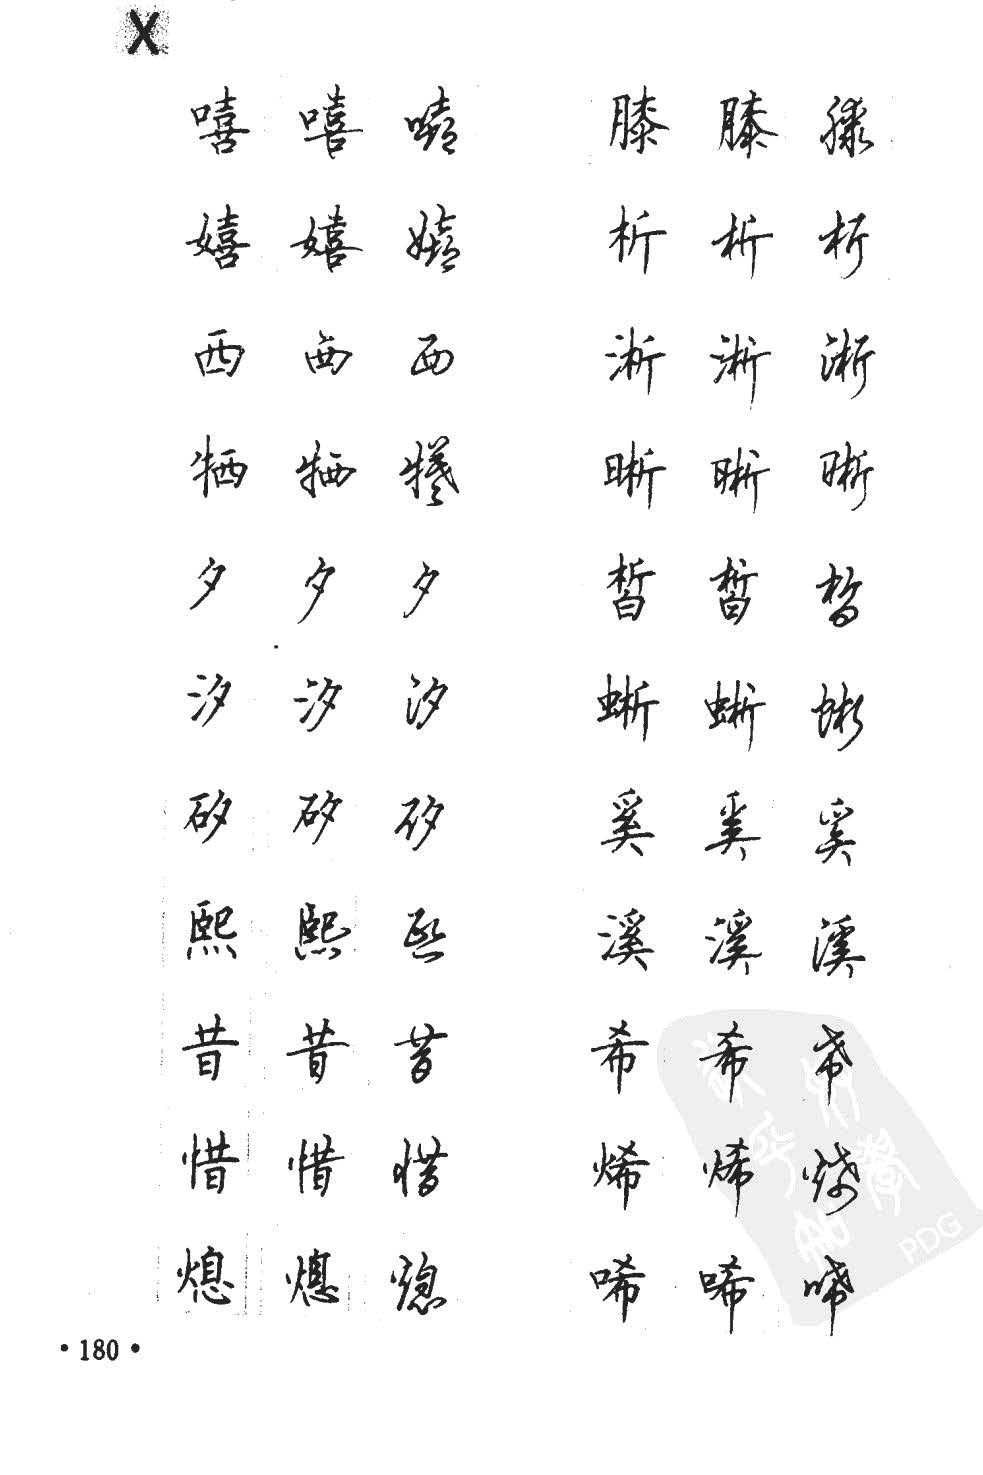 X
嘻 嘻 嘻 膝 膝 膝
嬉 嬉 嬉 析 析 析
西 西 西 淅 淅 淅
牺 牺 犧 晰 晰 晰
夕 夕 夕 皙 皙 皙
汐 汐 汐 蜥 蜥 蜥
矽 矽 矽 奚 奚 奚
熙 熙 熙 溪 溪 溪
昔 昔 昔 希 希 希
惜 惜 惜 烯 烯 烯
熄 熄 熄 唏 唏 唏
PDG
• 180 •